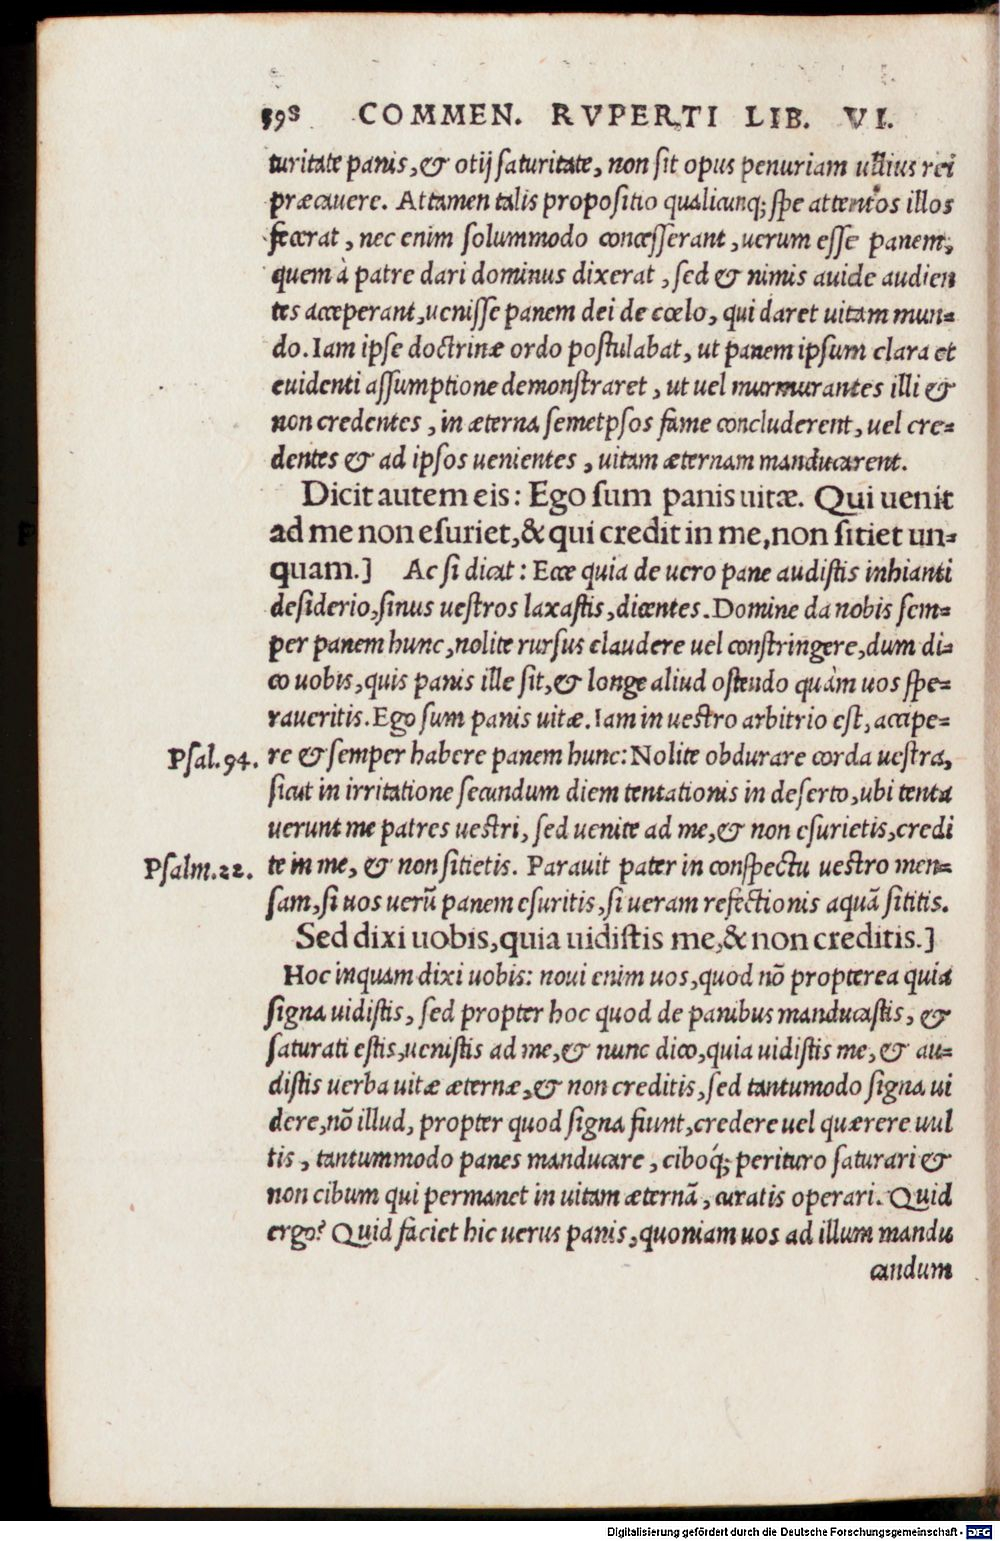 398 COMMEN. RVPERTI LIB. VI.
turitate panis, & otij saturitate, non sit opus penuriam ullius rei
præcauere. Attamen talis propositio qualicunq; spe attentos illos
fecerat, nec enim solummodo concesserant, uerum esse panem,
quem à patre dari dominus dixerat, sed & nimis auide audien
tes acceperant, uenisse panem dei de cœlo, qui daret uitam mun-
do. Iam ipse doctrinæ ordo postulabat, ut panem ipsum clara et
euidenti assumptione demonstraret, ut uel murmurantes illi &
non credentes, in æterna semetpsos fame concluderent, uel cre-
dentes & ad ipsos uenientes, uitam æternam manducarent.
Dicit autem eis: Ego sum panis uitæ. Qui uenit
ad me non esuriet, & qui credit in me, non sitiet un-
quam.] Ac si dicat: Ecce quia de uero pane audistis inhianti
desiderio, sinus uestros laxastis, dicentes. Domine da nobis sem-
per panem hunc, nolite rursus claudere uel constringere, dum di-
co uobis, quis panis ille sit, & longe aliud ostendo quàm uos spe-
raueritis. Ego sum panis uitæ. Iam in uestro arbitrio est, accipe-
Psal. 94. re & semper habere panem hunc: Nolite obdurare corda uestra,
sicut in irritatione secundum diem tentationis in deserto, ubi tenta
uerunt me patres uestri, sed uenite ad me, & non esurietis, credi
Psalm. 22. te in me, & non sitietis. Parauit pater in conspectu uestro men-
sam, si uos uerũ panem esuritis, si ueram refectionis aquã sititis.
Sed dixi uobis, quia uidistis me, & non creditis.]
Hoc inquam dixi uobis: noui enim uos, quod nõ propterea quia
signa uidistis, sed propter hoc quod de panibus manducastis, &
saturati estis, uenistis ad me, & nunc dico, quia uidistis me, & au-
distis uerba uitæ æternæ, & non creditis, sed tantumodo signa ui
dere, nõ illud, propter quod signa fiunt, credere uel quærere uul
tis, tantummodo panes manducare, ciboq́; perituro saturari &
non cibum qui permanet in uitam æternã, curatis operari. Quid
ergo? Quid faciet hic uerus panis, quoniam uos ad illum mandu
candum
Digitalisierung gefördert durch die Deutsche Forschungsgemeinschaft - DFG